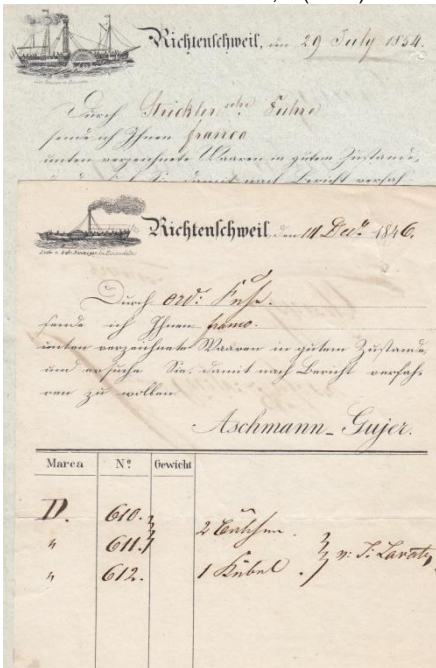 Richtenschweil, den 29 July 1854.
Durch Strickler Fuhre
sende ich Ihnen franco
unten verzeichnete Waaren in gutem Zustande,
damit nach Bericht verfah-
Richtenschweil, den 14 Decbr 1846.
Durch ord: Fuhr.
sende ich Ihnen franco.
unten verzeichnete Waaren in gutem Zustande,
und ersuche Sie damit nach Bericht verfah-
ren zu wollen
Aschmann-Gujer.
Marca Nº Gewicht
D. 610.
" 611. 2
" 612. 1 Kübel. v: J. Lavater